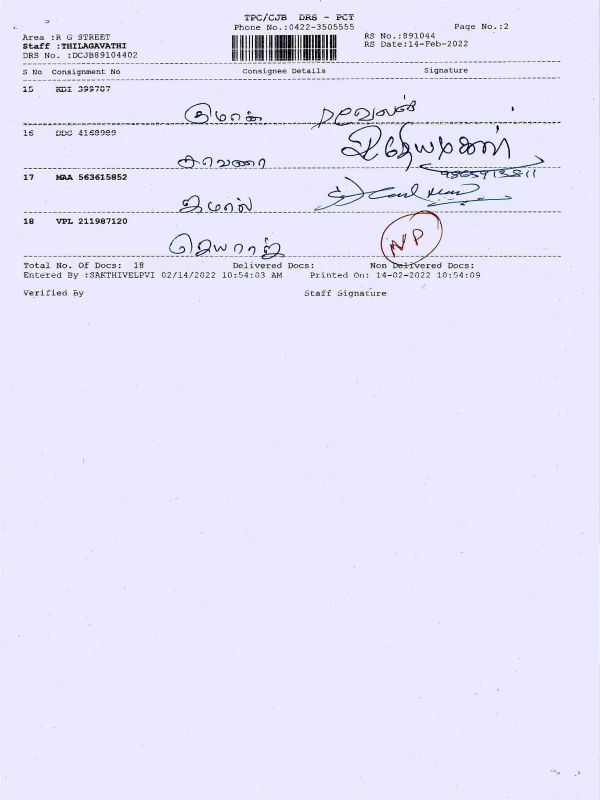 TPC/CJB DRS - PCT
Phone No.:0422-3505555
Page No.:2
Area :R G STREET
RS No.:891044
Staff :THILAGAVATHI
RS Date:14-Feb-2022
DRS No. :DCJB89104402
S No Consignment No Consignee Details Signature
15 KDI 399707
16 DDG 4168989
சரவணா
17 MAA 563615852
ஜமால்
18 VPL 211987120
ஜெயராஜ் NP
Total No. Of Docs: 18 Delivered Docs: Non Delivered Docs:
Entered By :SAKTHIVELPVI 02/14/2022 10:54:03 AM Printed On: 14-02-2022 10:54:09
Verified By Staff Signature